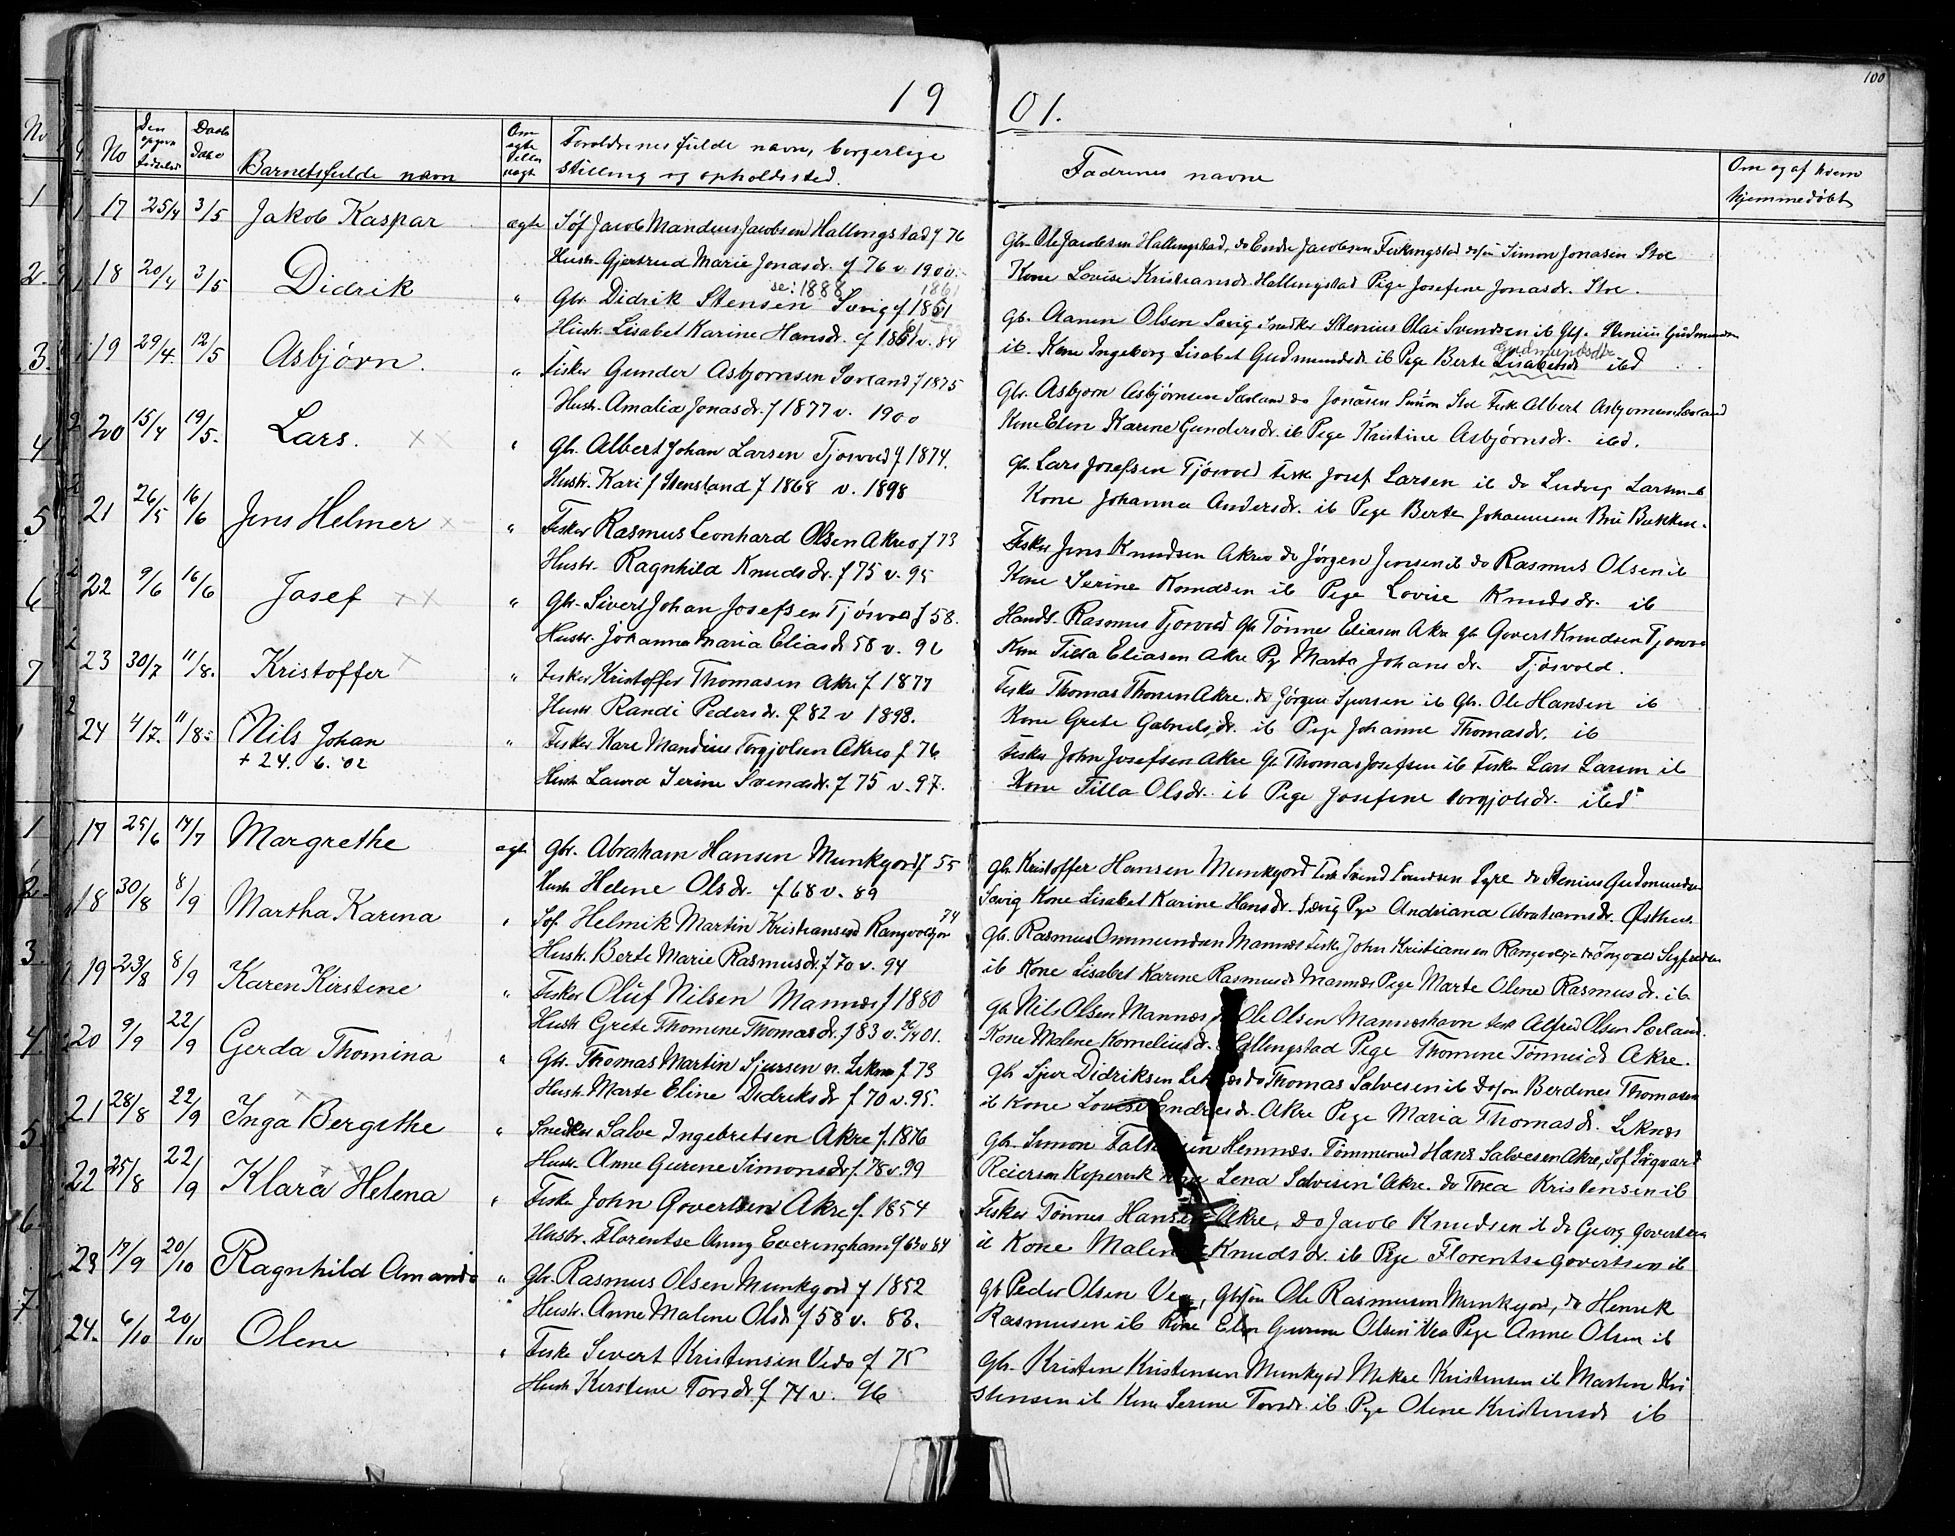 19 01.
100
No
No
Den opgivne fødselsd
Daabs dato
Barnets fulde navn
Om ægte eller uægt
Foroldrenes fulde navn, borgerlige
stilling og opholdssted.
Fadrenes navne
Om og af hvem
hjemmedøbt
1
17 25/4 3/5 Jakob Kaspar ægte Søf Jacob Mandius Jacobsen Hallingstad f 76
Hustr. Gjertrud Marie Jonasdr. f 76 v. 1900.
Gbr. Ole Jacobsen Hallingstad, do Endre Jacobsen Ferkingstad do søn Simon Jonasen Stoe
Kone Lovise Kristiansdr Hallingstad Pige Josefine Jonasdr. Stoe.
2.
18 20/4 3/5 Didrik " Gbr. Didrik Stensen Sævig f 1861
se: 1888 1861
Hustr. Lisabet Karine Hansdr. f 1861 v. 84
83
Gb. Aanen Olsen Sævig Snedker Stenius Olai Svendsen ib Gbf. Stenius Gudmundsen
ib. Kone Ingeborg Lisabet Gudmundsdr ib Pige Berte Lisabetsdr ibd
Gudmundsdtr
3.
19 29/4. 12/5 Asbjørn. " Fisker Gunder Asbjørnsen Sørland f 1875
Hustr. Amalia Jonasdr. f 1877 v. 1900
Gbr. Asbjørn Asbjørnsen Sørland do Jonasen Simon Stoe Fisk Albert Asbjørnsen Sørland
Kone Elen Karine Gundersdr. ib Pige Kristine Asbjørnsdr. ibd.
4
20 15/4 19/5. Lars. xx " Gb. Albert Johan Larsen Tjøsvold f 1874.
Hustr. Kari f Stensland f 1868 v. 1898
Gb. Lars Josefsen Tjøsvold Fisk. Josef Larsen ib do Ludvig Larsen ib
Kone Johanna Andersdr. ib Pige Berte Johannesen Bøe Bakken.
5
21 26/5 16/6 Jens Helmer x " Fisker Rasmus Leonhard Olsen Akre f 73
Hustr. Ragnhild Knudsdr. f 75 v. 95
Fisker Jens Knudsen Akre do Jørgen Jensen ib do Rasmus Olsen ib
Kone Serine Knudsen ib Pige Lovise Knudsdr. ib
6
22 9/6 16/6 Josef xx " Gb. Sivert Johan Josefsen Tjøsvold f 58.
Hustr. Johanna Maria Eliasdr 58 v. 96
Handl. Rasmus Tjøsvold Gb Tønnes Eliasen Akre gb Govert Knudsen Tjøsvold
Kone Tilla Eliasen Akre Pg Marta Johansdr. Tjøsvold.
7
23 30/7 11/8. Kristoffer x " Fisker Kristoffer Thomasen Akre f 1877
Hustr Randi Pedersdr. f 82 v 1898.
Fisker Thomas Thomsen Akre. do Jørgen Sjursen ib Gb. Ole Hansen ib
Kone Grete Gabrielsdr. ib Pige Johanne Thomasdr. ib
24 4/7. 11/8. Nils Johan " Fisker Kare Mandius Torgjolsen Akre f. 76
+ 24. 6. 02
Hustr Laura Serine Svendsdr. f 75 v. 97.
Fisker John Josefsen Akre Gb Thomas Josefsen ib Fisker Lars Larsen ib
Kone Tilla Olsdr. ib Pige Josefine Torgjolsdr. ibd
1
17 25/6 14/7 Margrethe ægt. Gbr. Abraham Hansen Munkejord f 55
Hustr Helene Olsdr. f 68 v. 89
Gb. Kristoffer Hansen Munkejord Fisk Svend Svendsen Syre do Stenius Gudmundsen
Sævig Kone Lisabet Karine Hansdr. Sævig Pige Andriana Abrahamsdr. Østhus.
2.
18 30/8 8/9 Martha Karina " Sof. Helmik Martin Kristiansen Rangvoldsjor 74
Hustr. Berte Marie Rasmusdr. f 70 v. 94
Gb. Rasmus Ommundsen Mannes Fisk John Kristiansen do
ib Kone Lisabet Karine Rasmusdr Mannes Pige Marte Olene Rasmusdr. ib
3.
19 23/8 8/9 Karen Kirstine " Fisker Oluf Nilsen Mannes f 1880
Hustr Grete Thomine Thomasdr. f 83 v. 01.
Gb Nils Olsen Mannes do Ole Olsen Manneshavn fisk Alfred Olsen Sørland.
Kone Malene Korneliusdr. Hallingstad Pige Thomine Tønnesdr Akre.
4.
20 9/9 22/9 Gerda Thomina " Gbr. Thomas Martin Sjursen n. Liknes f 73
Hustr. Marte Eline Didriksdr f 70 v. 95.
Gb Sjur Didriksen do Thomas Salvesen ib Do søn Berdines Thomasen
ib Kone Lovise Endresdr. Akre Pige Maria Thomasdr. Liknes
5.
21 28/8 22/9 Inga Bergithe " Snedker Salve Ingebretsen Akre f. 1876
Hustr. Anne Gurine Simonsdr f. 78 v. 99
Gb. Simon Hemnes. Tømmermd Hans Salvesen Akre, Sof Sigvard
Reiersen Kopervik Lena Salvesen Akre. do Thea Kristensen ib
22 25/8 22/9 Klara Helena " Fisker John Govertsen Akre f. 1854
Hustr. Florentse Anny Everingham f 63 v. 84
Fisker Tønnes Hansen Akre, Do Jacob Knudsen ib do Georg Govertsen
ib Kone Malene Knudsdr. ib Pige Florentse Govertsen ib
6.
23 17/9 20/10 Ragnhild Amanda " Gbr. Rasmus Olsen Munkejord f 1852
Hustr. Anne Malene Olsd f 58 v. 83.
Gb Peder Olsen Vea, Gb søn Ole Rasmusen Munkejord, do Henrik
Rasmusen ib Kone Elen Gurine Olsen Vea Pige Anne Olsen ib
7.
24. 6/10 20/10 Olene " Fisker Sivert Kristensen Vedø f 75
Hustr Kirstine Torsdr. f 74 v. 96
Gb. Kristen Kristensen Munkejord Mikal Kristensen ib Marten Kri
stensen ib Kone Serine Torsdr. ib. Pige Olene Kristensdr ib